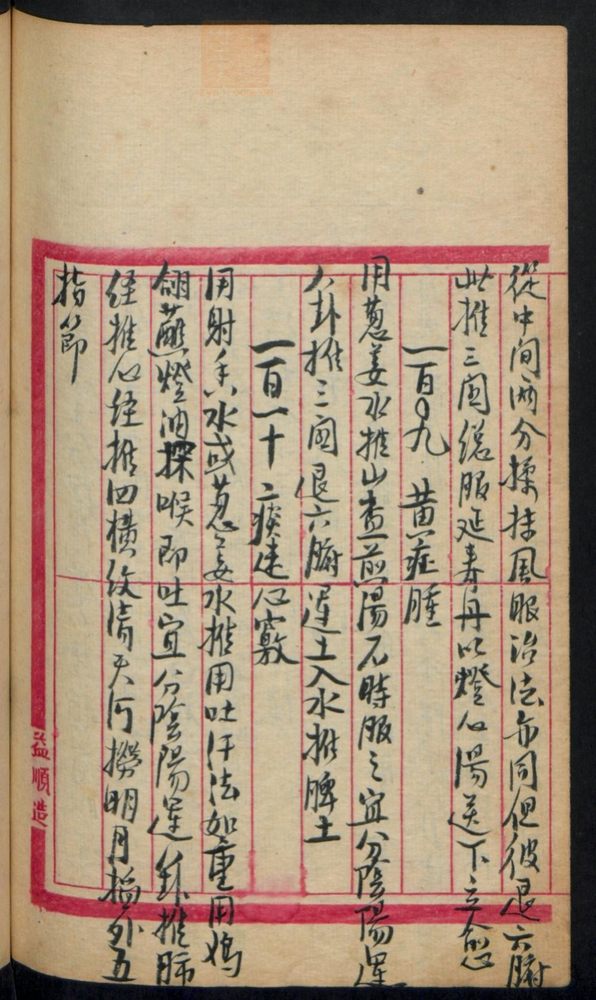 從中间两分揉抹風眼治法亦同但彼退六腑
此推三関後服延寿丹以燈心湯送下立愈
一百〇九 黄症腫
用葱姜水推山查煎湯不時服之宜分陰陽運
八卦推三関退六腑運土入水推脾土
一百一十 痰迷心竅
用射香水或葱姜水推用吐汗法如重用鴉
翎蘸燈油探喉即吐宜分陰陽運八卦推肺
経推心経推四横纹清天河撈明月掐外五
指節
益順造